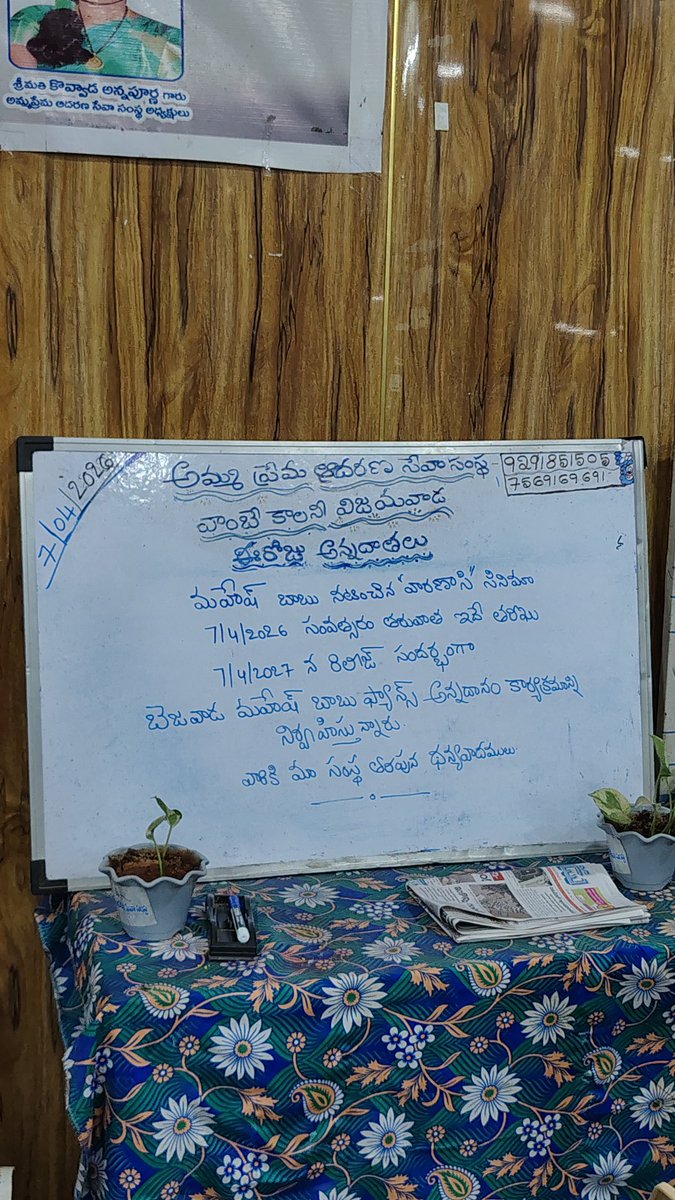 శ్రీమతి కొవ్వాడ అన్నపూర్ణ గారు
అమ్మప్రేమ ఆదరణ సేవా సంస్థ అధ్యక్షులు
7/04/2026
అమ్మ ప్రేమ ఆదరణ సేవా సంస్థ
9291851505
7569169691
వాంబే కాలనీ విజయవాడ
ఈరోజు అన్నదాతలు
మహేష్ బాబు నటించిన "వారణాసి" సినిమా
7/4/2026 సంవత్సరం తరువాత ఇదే తేదీకు
7/4/2027 న రిలీజ్ సందర్భంగా
బెజవాడ మహేష్ బాబు ఫ్యాన్స్ అన్నదానం కార్యక్రమాన్ని
నిర్వహిస్తున్నారు.
వారికి మా సంస్థ తరపున ధన్యవాదములు